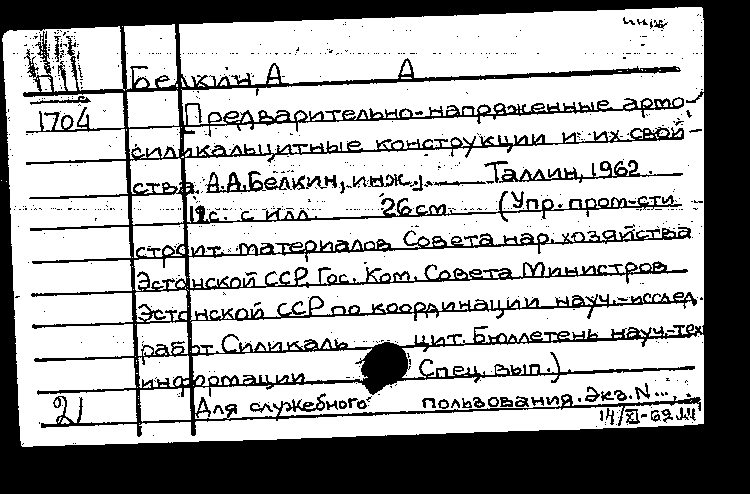 П
Белкин, А А
1704 Предварительно-напряженные армо-
силикальцитные конструкции и их свой-
ства. А.А.Белкин, инж., Таллин, 1962.
12с. с илл. 26см. (Упр. пром-сти
строит. материалов Совета нар. хозяйства
Эстонской ССР. Гос. Ком. Совета Министров
Эстонской ССР по координации науч.-исслед.
работ. Силикаль цит. Бюллетень науч.-тех
информации Спец. вып.).
21 Для служебного пользования. Экз. N...,.